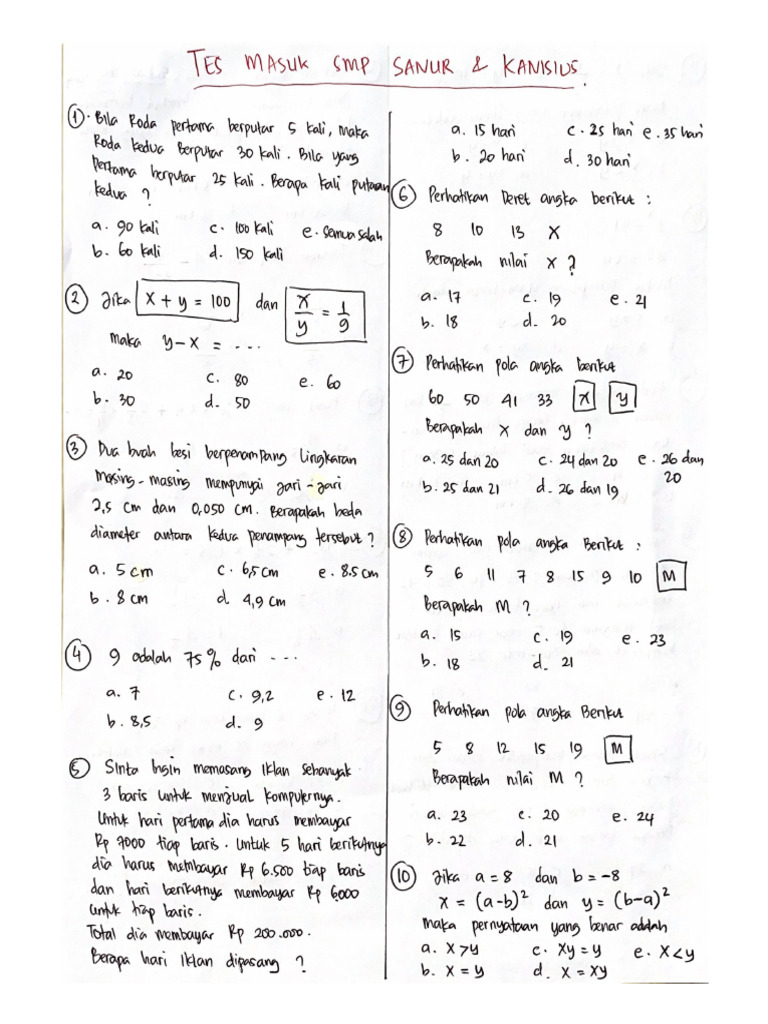 TES MASUK SMP SANUR & KANISIUS.
① Bila Roda pertama berputar 5 kali, maka
Roda kedua Berputar 30 kali. Bila yang
pertama berputar 25 kali. Berapa kali putaran
kedua ?
a. 90 kali c. 100 kali e. semua salah
b. 60 kali d. 150 kali
② Jika x + y = 100 dan x/y = 1/9
maka y-x = ....
a. 20 c. 80 e. 60
b. 30 d. 50
③ Dua buah besi berpenampang lingkaran
masing-masing mempunyai jari-jari
2,5 cm dan 0,050 cm. Berapakah beda
diameter antara kedua penampang tersebut ?
a. 5 cm c. 6,5 cm e. 8.5 cm
b. 8 cm d. 4,9 cm
④ 9 adalah 75% dari ...
a. 7 c. 9,2 e. 12
b. 8,5 d. 9
⑤ Sinta Ingin memasang Iklan sebanyak
3 baris untuk menjual komputernya.
Untuk hari pertama dia harus membayar
Rp 7000 tiap baris. Untuk 5 hari berikutnya
dia harus membayar Rp 6.500 tiap baris
dan hari berikutnya membayar Rp 6000
untuk tiap baris.
Total dia membayar Rp 200.000.
Berapa hari Iklan dipasang ?
a. 15 hari c. 25 hari e. 35 hari
b. 20 hari d. 30 hari
⑥ Perhatikan Deret angka berikut :
8 10 13 X
Berapakah nilai x ?
a. 17 c. 19 e. 21
b. 18 d. 20
⑦ Perhatikan pola angka berikut
60 50 41 33 X Y
Berapakah x dan y ?
a. 25 dan 20 c. 24 dan 20 e. 26 dan
20
b. 25 dan 21 d. 26 dan 19
⑧ Perhatikan pola angka Berikut :
5 6 11 7 8 15 9 10 M
Berapakah M ?
a. 15 c. 19 e. 23
b. 18 d. 21
⑨ Perhatikan pola angka Berikut
5 8 12 15 19 M
Berapakah nilai M ?
a. 23 c. 20 e. 24
b. 22 d. 21
⑩ Jika a = 8 dan b = -8
x = (a-b)² dan y = (b-a)²
maka pernyataan yang benar adalah
a. x>y c. xy = y e. x<y
b. x = y d. x = xy